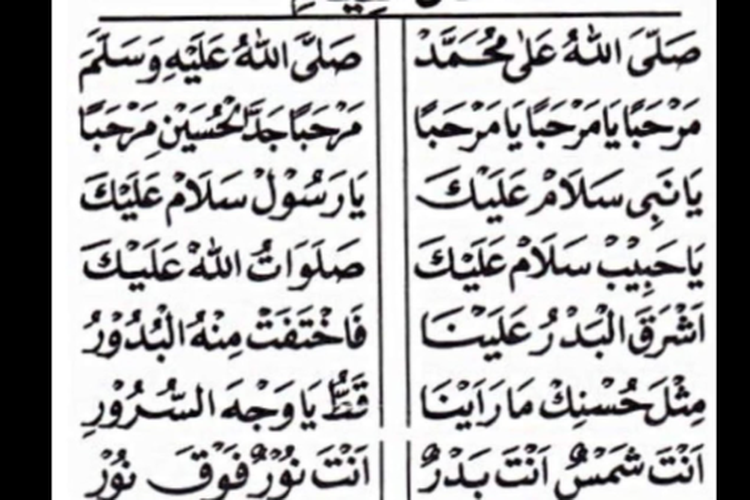 صَلَّى اللهُ عَلٰى مُحَمَّدْ صَلَّى اللهُ عَلَيْهِ وَسَلَّمَ
مَرْحَبًا يَا مَرْحَبًا يَا مَرْحَبًا مَرْحَبًا جَدَّ الْحُسَيْنِ مَرْحَبًا
يَا نَبِى سَلَامْ عَلَيْكَ يَا رَسُوْلْ سَلَامْ عَلَيْكَ
يَا حَبِيْبْ سَلَامْ عَلَيْكَ صَلَوَاتُ اللهْ عَلَيْكَ
اَشْرَقَ الْبَدْرُ عَلَيْنَا فَاخْتَفَتْ مِنْهُ الْبُدُوْرُ
مِثْلَ حُسْنِكْ مَا رَاَيْنَا قَطُّ يَا وَجْهَ السُّرُوْرِ
اَنْتَ شَمْسٌ اَنْتَ بَدْرٌ اَنْتَ نُوْرٌ فَوْقَ نُوْرْ